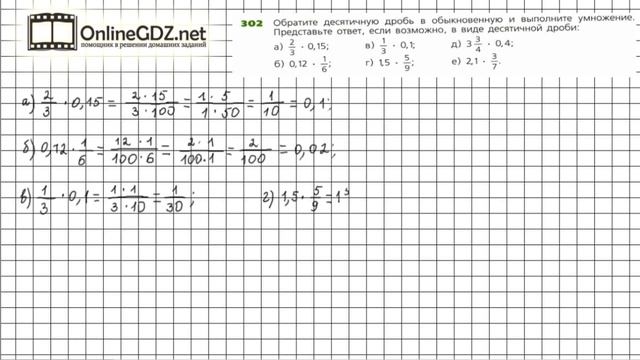 OnlineGDZ.net
помощник в решении домашних заданий
302 Обратите десятичную дробь в обыкновенную и выполните умножение.
Представьте ответ, если возможно, в виде десятичной дроби:
а) 2/3 · 0,15; в) 1/3 · 0,1; д) 3 3/4 · 0,4;
б) 0,12 · 1/6; г) 1,5 · 5/9; е) 2,1 · 3/7.
а) 2/3 · 0,15 = 2·15/3·100 = 1·5/1·50 = 1/10 = 0,1;
б) 0,12 · 1/6 = 12·1/100·6 = 2·1/100·1 = 2/100 = 0,02;
в) 1/3 · 0,1 = 1·1/3·10 = 1/30; г) 1,5 · 5/9 = 1 5